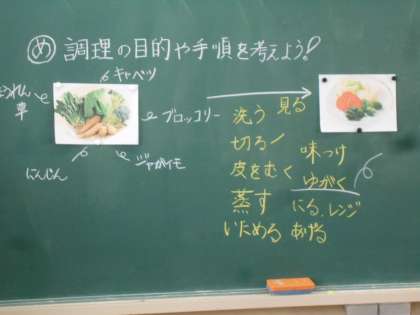 め 調理の目的や手順を考えよう!
キャベツ
うれん
草
ブロッコリー
にんじん
ジャガイモ
洗う 見る
切る
皮をむく
蒸す
いためる
味つけ
ゆがく
にる、レンジ
あげる